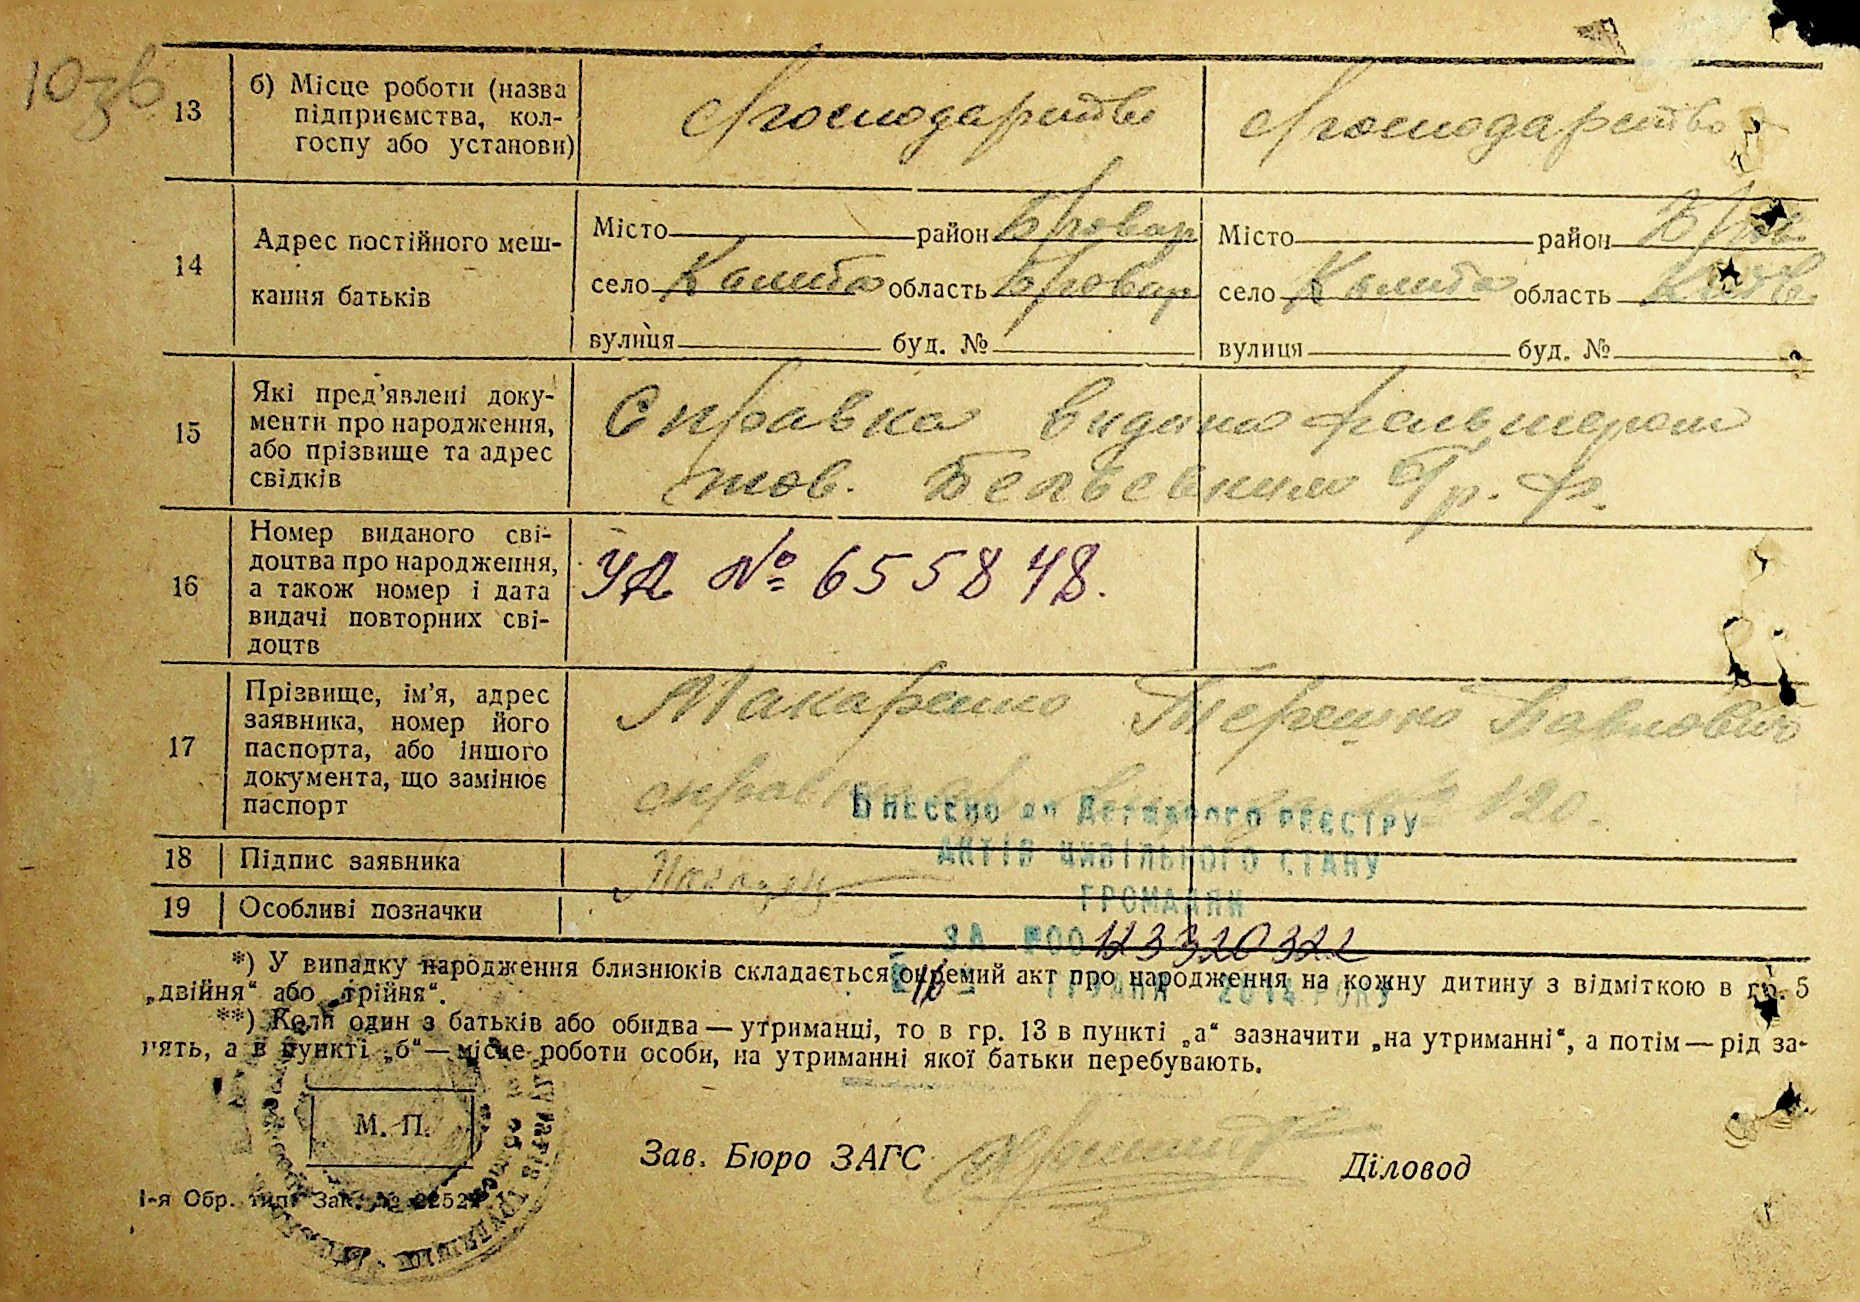 10 зв
13 б) Місце роботи (назва
підприємства, кол-
госпу або установи)
с/господарство с/господарство
14 Адрес постійного меш-
кання батьків
Місто район Бровар Місто район Бров
село Калита область Бровар село Калита область Київ
вулиця буд. № вулиця буд. №
15 Які пред'явлені доку-
менти про народження,
або прізвище та адрес
свідків
Справка видана фельшером
тов. Гр. Ф.
16 Номер виданого сві-
доцтва про народження,
а також номер і дата
видачі повторних сві-
доцтв
УА № 655848.
17 Прізвище, ім'я, адрес
заявника, номер його
паспорта, або іншого
документа, що замінює
паспорт
Макаренко Терешко Павлович
справка № 120.
Внесено до Державного реєстру
актів цивільного стану
громадян
18 Підпис заявника
19 Особливі позначки
за №00123320322
грудня 2014 року
*) У випадку народження близнюків складається окремий акт про народження на кожну дитину з відміткою в гр. 5
„двійня“ або „трійня“.
**) Коли один з батьків або обидва — утриманці, то в гр. 13 в пункті „а“ зазначити „на утриманні“, а потім — рід за-
нять, а в пункті „б“ — місце роботи особи, на утриманні якої батьки перебувають.
М. П.
Зав. Бюро ЗАГС Діловод
1-я Обр. тип. Зак. №